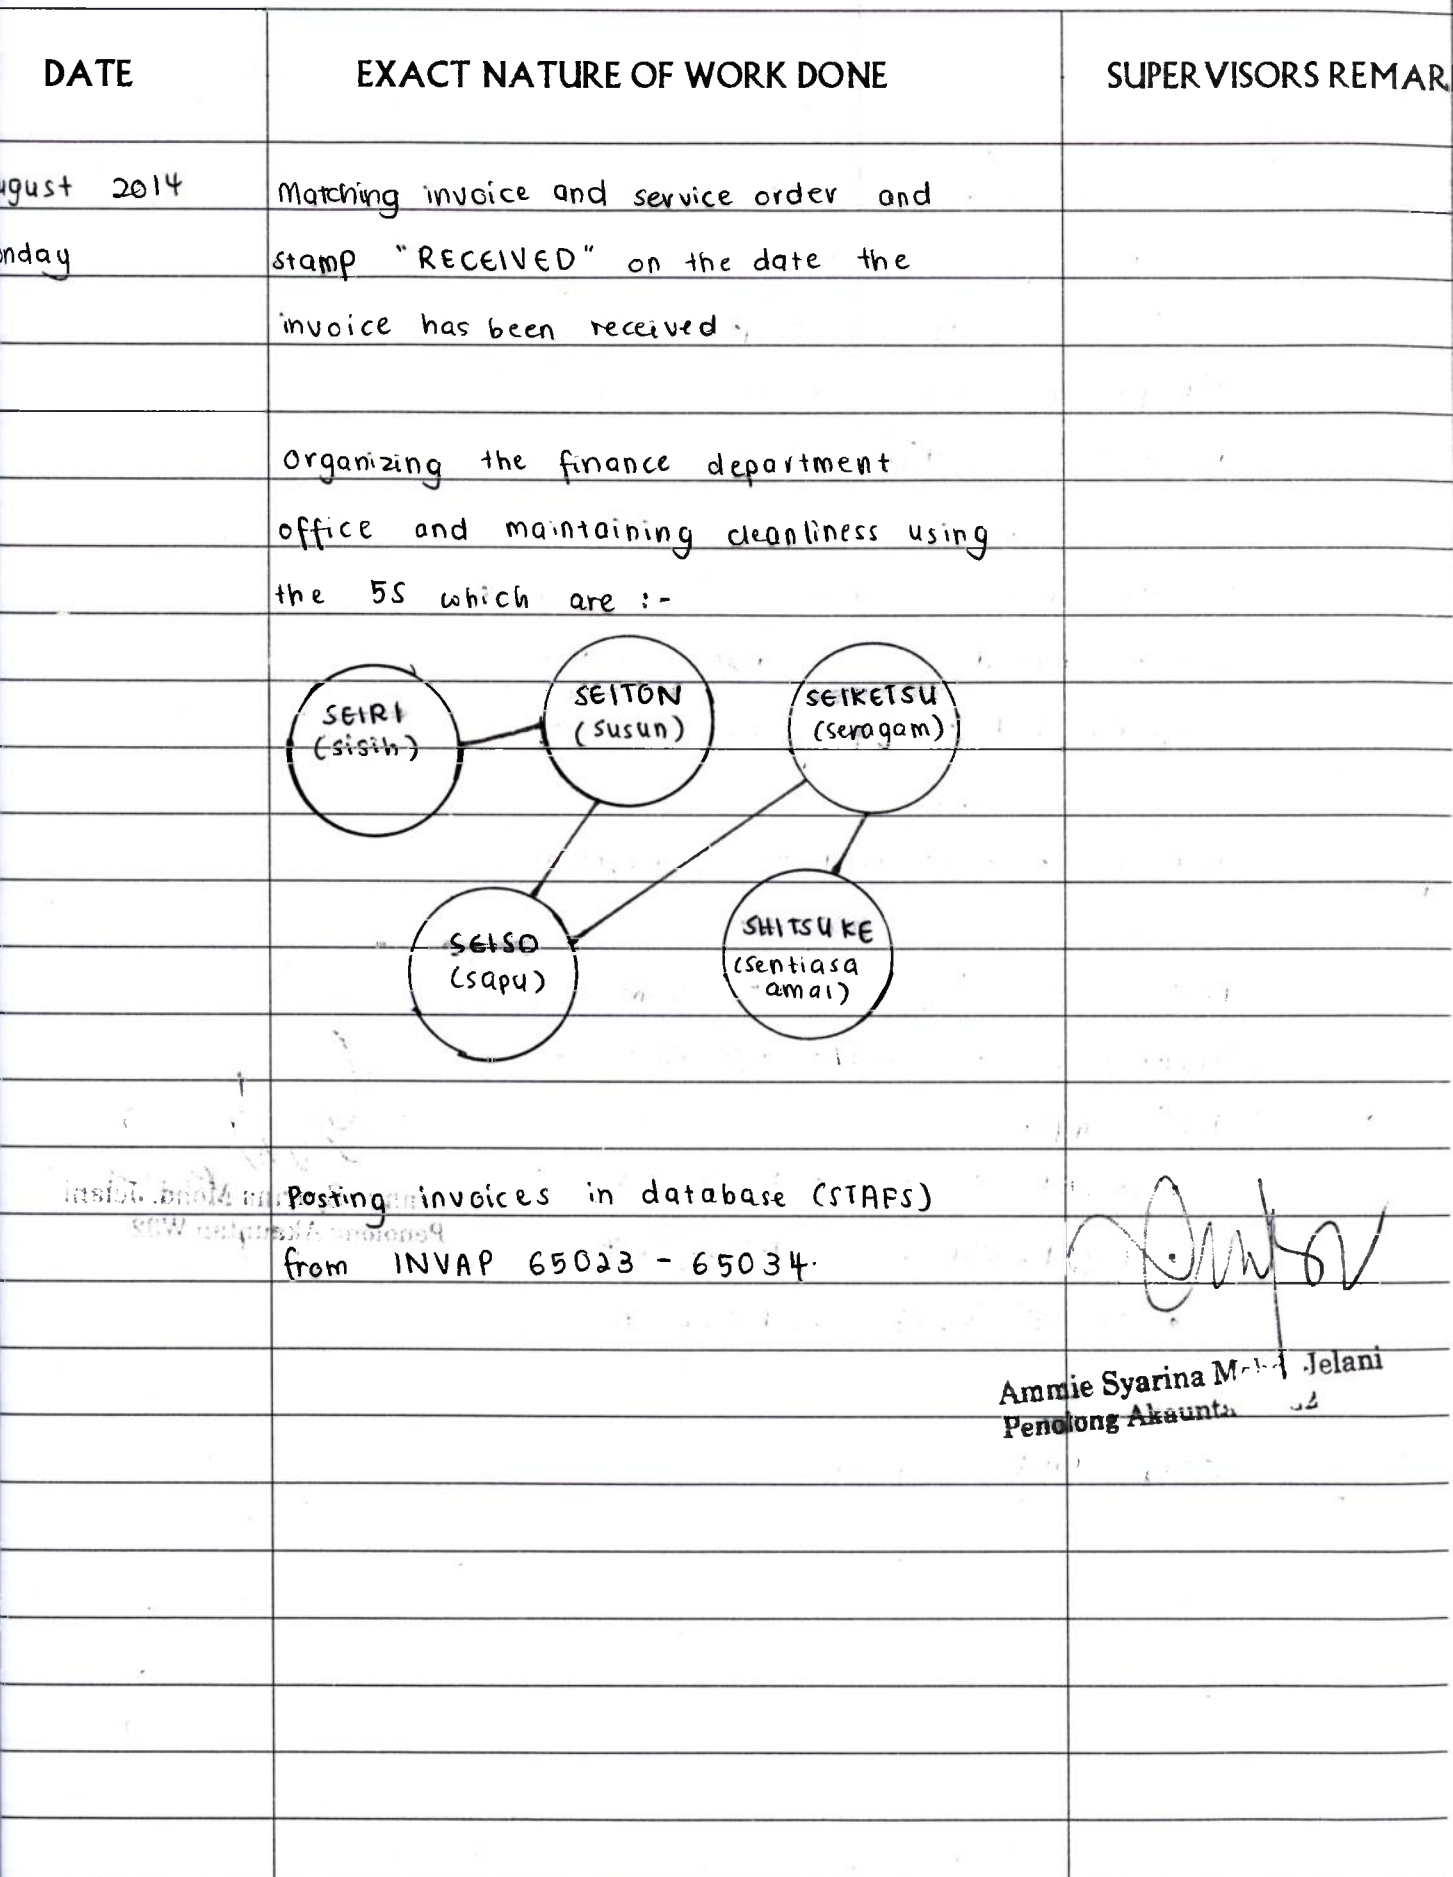 DATE EXACT NATURE OF WORK DONE SUPERVISORS REMAR
ugust 2014 Matching invoice and service order and
nday stamp "RECEIVED" on the date the
invoice has been received.
Organizing the finance department
office and maintaining cleanliness using
the 5S which are :-
SEIRI
(sisih)
SEITON
(susun)
SEIKETSU
(seragam)
SEISO
(sapu)
SHITSUKE
(sentiasa
amal)
Posting invoices in database (STAFS)
from INVAP 65023 - 65034.
Ammie Syarina Jelani
Penolong